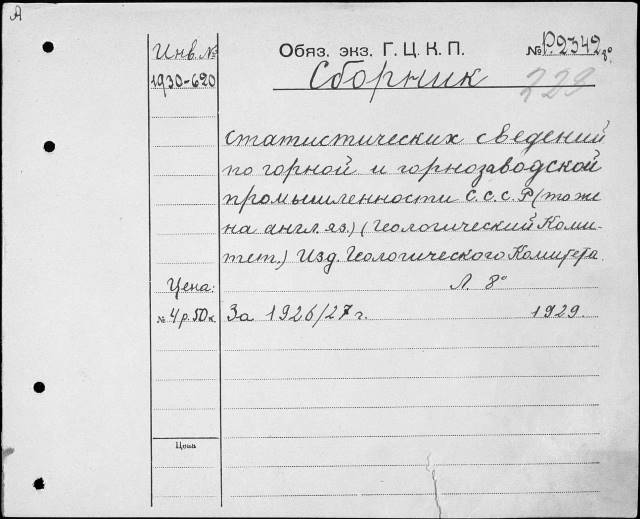 А
Инв. №
1930-620
Обяз. экз. Г. Ц. К. П.
№ Р.2342 8°
Сборник
229
статистических сведений
по горной и горнозаводской
промышленности С.С.С.Р (тоже
на англ. яз.) (Геологический Коми-
тет.) Изд. Геологического Комитета.
Л. 8°
Цена:
№ 4 р. 50 к
За 1926/27 г.
1929.
Цена